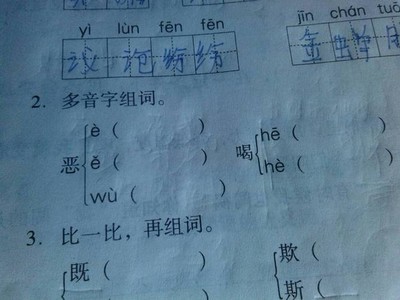 yì lùn fēn fēn
jīn chán tuō
议论纷纷
金蝉脱
2. 多音字组词。
恶 è ( )
ě ( )
wù ( )
喝 hē (
hè ( )
3. 比一比，再组词。
既 ( )
欺 (
斯 (